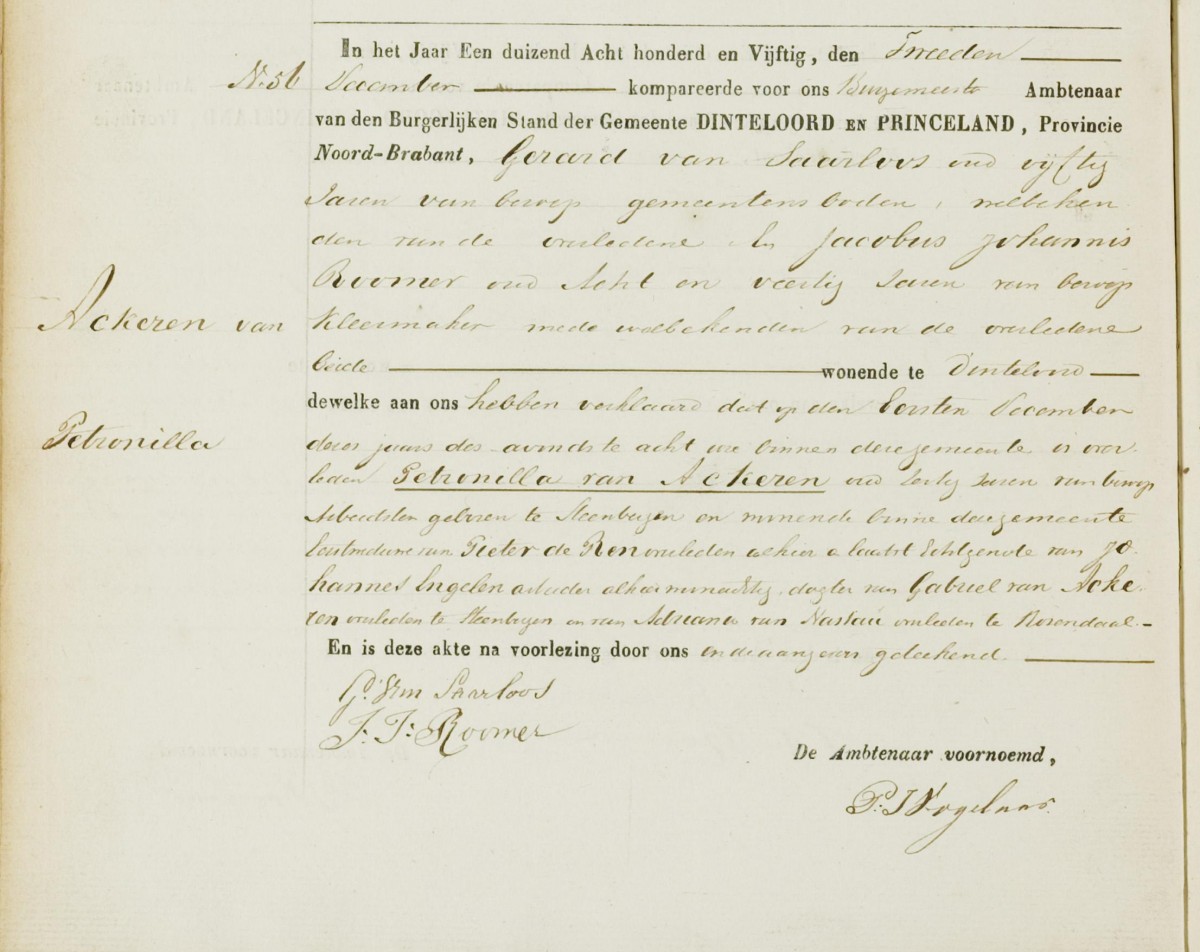 In het Jaar Een duizend Acht honderd en Vijftig, den Tweeden
N.56 December kompareerde voor ons Burgemeester Ambtenaar
van den Burgerlijken Stand der Gemeente DINTELOORD EN PRINCELAND, Provincie
Noord-Brabant, Gerard van Saarloos oud vijftig
Jaren van beroep gemeentens boden, welbeken
den van de overledene En Jacobus Johannis
Roomer oud Acht en veertig Jaren van beroep
Ackeren van
Kleermaker mede welbekenden van de overledene
beide wonende te Dinteloord
dewelke aan ons hebben verklaard dat op den Eersten December
Petronilla
dezes jaars des avonds te acht ure binnen deze gemeente is over
leden Petronilla van Ackeren oud Jaren van beroep
Arbeidster geboren te Steenbergen en wonende binne deze gemeente
Eerst weduwe van Pieter de Ren overleden alhier en laatst Echtgenote van Jo-
hannes Engelen arbeider alhier woonachtig, dogter van Gabriel van Acke-
ren overleden te Steenbergen en van Adriana van Nastau overleden te Rosendaal.
En is deze akte na voorlezing door ons en de aangevers geteekend
G. Van Saarloos
J. J. Roomer
De Ambtenaar voornoemd,
P. J Vogelaar.